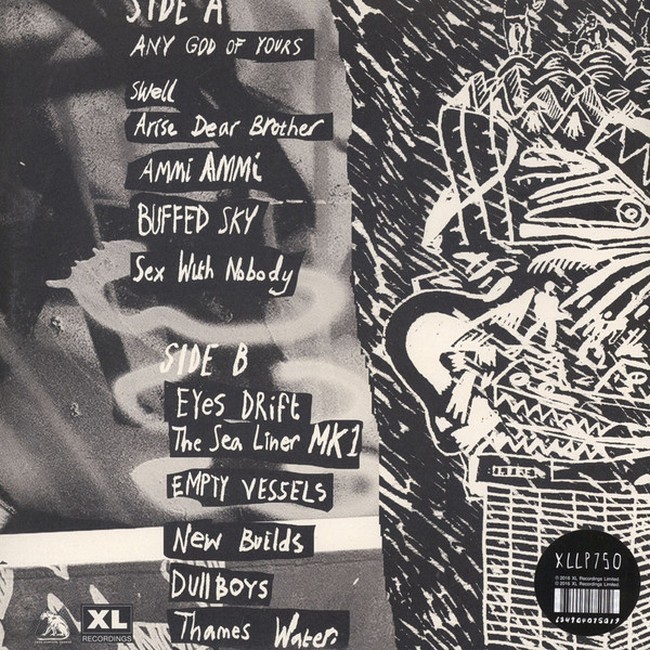 SIDE A
ANY GOD OF YOURS
Swell
Arise Dear Brother
AMMi AMMi
BUFFED SKY
Sex With Nobody
SIDE B
EYES DRIFT
The Sea Liner MK1
EMPTY VESSELS
New Builds
DULLBOYS
Thames Water.
XLLP750
℗ 2016 XL Recordings Limited.
© 2016 XL Recordings Limited.
XL
RECORDINGS